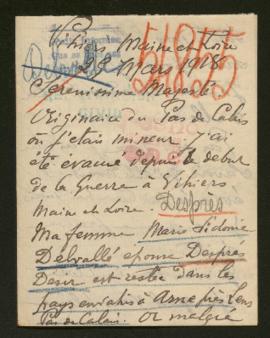 Vihiers Maine et Loire
28 Mars 1918
Serenissime Majesté
Originaire du Pas de Calais
où j'étais mineur. j'ai
été évacué depuis le debut
de la Guerre à Vihiers
Maine et Loire.
Després
Ma femme Marie Sidonie
Delvallé épouse Després
Désir est restée dans les
Pays envahis à près Lens
Pas de Calais. Or malgré